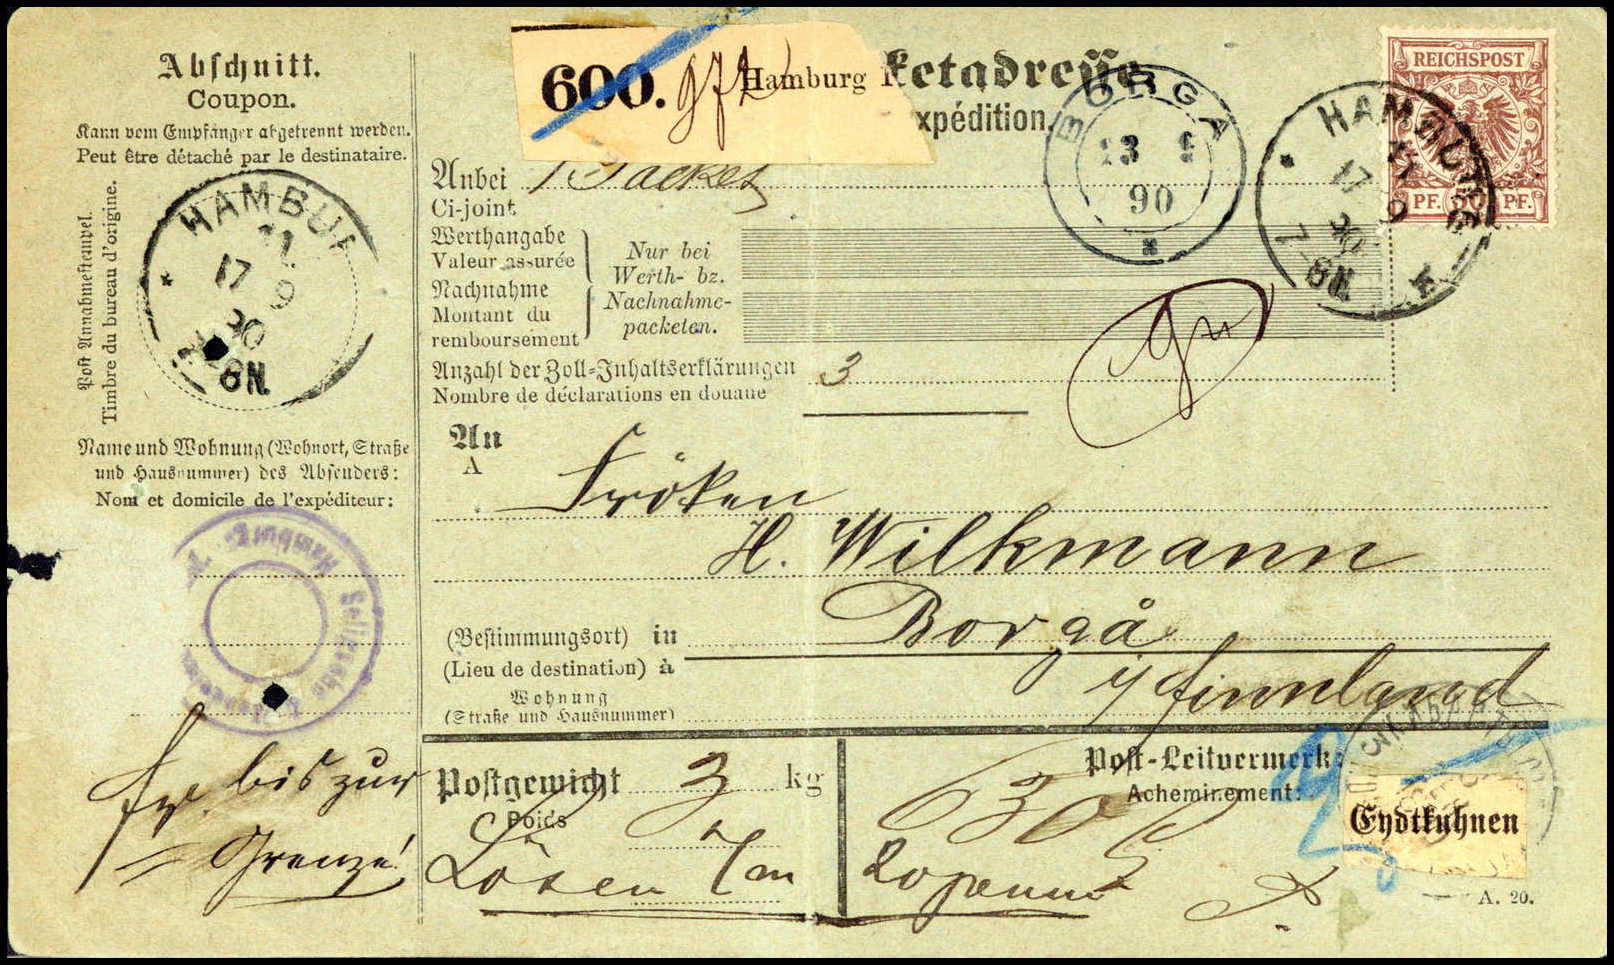 Abschnitt.
Coupon.
Kann vom Empfänger abgetrennt werden.
Peut être détaché par le destinataire.
Post Annahmestempel.
Timbre du bureau d'origine.
HAMBUR
11
17 9
90
7-8N.
Name und Wohnung (Wohnort, Straße
und Hausnummer) des Absenders:
Nom et domicile de l'expéditeur:
Hamburg
bis zur
Grenze
600.
972
Hamburg
ketadresse
xpédition.
BORGÅ
23 9
90
REICHSPOST
PF. 50 PF.
HAMBURG
11
17 9
90
7-8N.
Anbei 1 Packet
Ci-joint
Werthangabe
Valeur assurée
Nachnahme
Montant du
remboursement
Nur bei
Werth- bz.
Nachnahme-
packeten.
Anzahl der Zoll-Inhaltserklärungen 3
Nombre de déclarations en douane
An
A
Fröken
H. Wilkmann
(Bestimmungsort) in Borgå
(Lieu de destination) à
Wohnung
(Straße und Hausnummer)
i/ Finnland
Postgewicht 3 kg
Poids
Lösen 7 m
Post-Leitvermerk:
Acheminement:
Eydtkuhnen
A. 20.